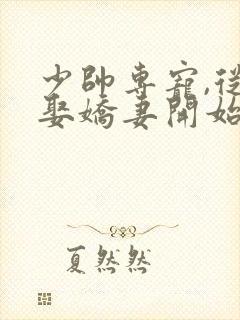 少帥專寵,從
娶嬌妻開始
夏然然